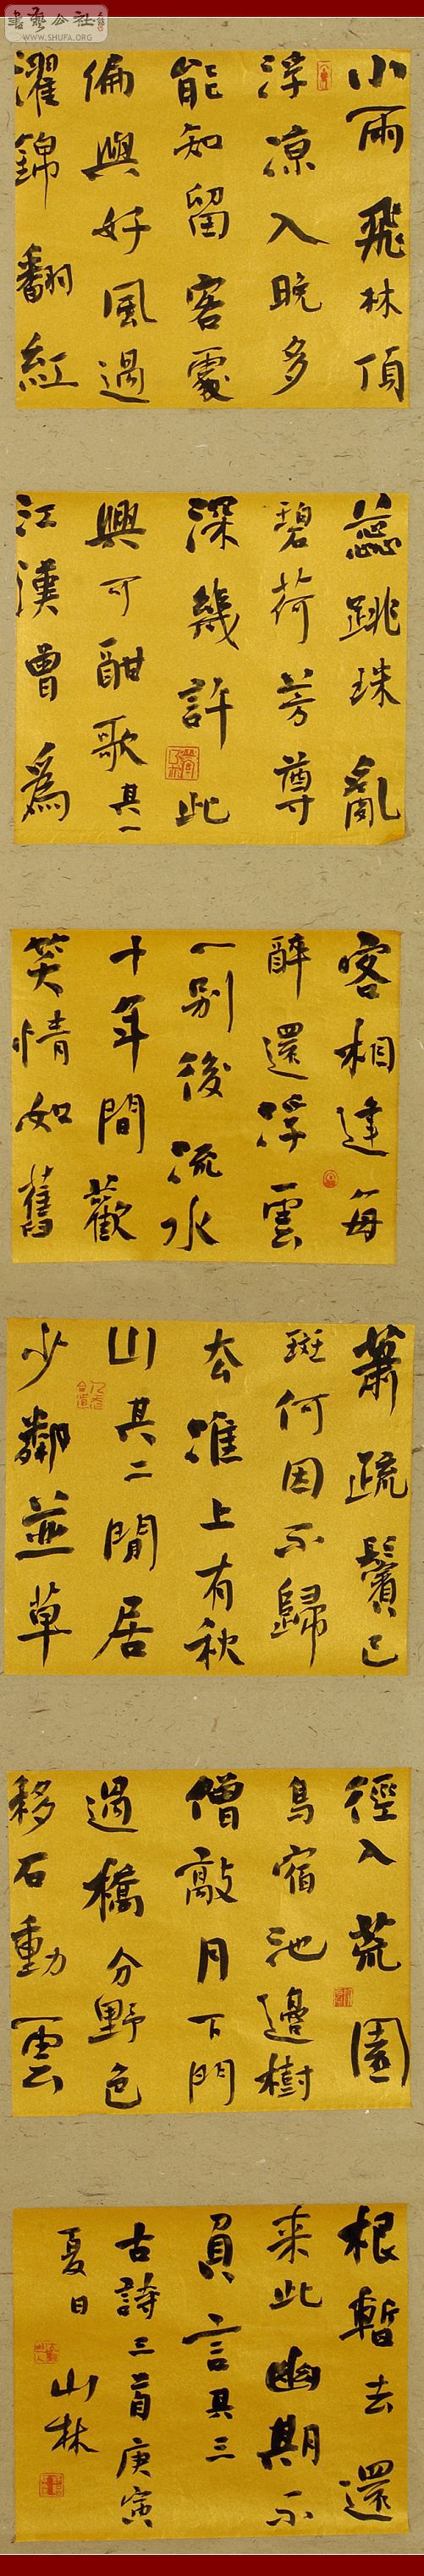 書藝公社
WWW.SHUFA.ORG
小雨飛林頂
浮凉入晚多
能知留客處
偏與好風過
濯錦翻紅
蕊跳珠亂
碧荷芳尊
深幾許此
興可酣歌其一
江漢曾為
客相逢每
醉還浮雲
一別後流水
十年間歡
笑情如舊
蕭疏鬢已
斑何因不歸
去淮上有秋
山其二閒居
少鄰並草
徑入荒園
鳥宿池邊樹
僧敲月下門
過橋分野色
移石動雲
根暫去還
来此幽期不
負言其三
古詩三首庚寅
夏日山林